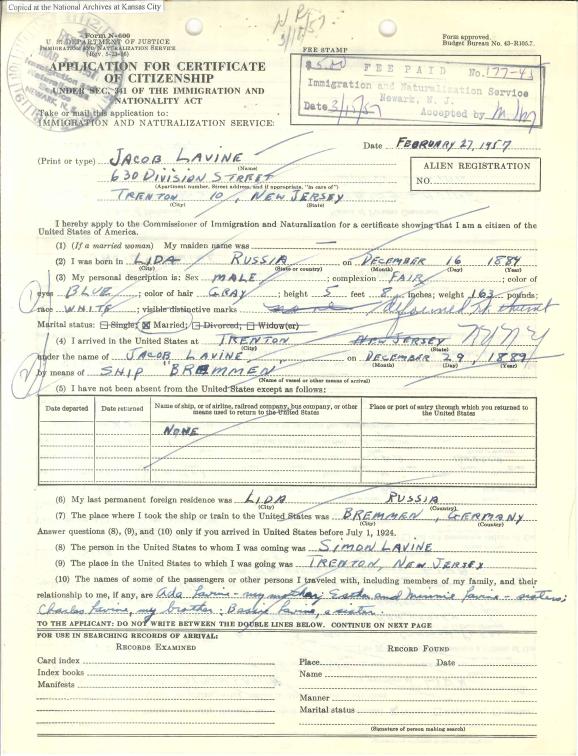 Copied at the National Archives at Kansas City
Form N-600
U. S. DEPARTMENT OF JUSTICE
IMMIGRATION AND NATURALIZATION SERVICE
Form approved.
Budget Bureau No. 43-R105.7.
APPLICATION FOR CERTIFICATE
OF CITIZENSHIP
UNDER SEC. 341 OF THE IMMIGRATION AND
NATIONALITY ACT
Take or mail this application to:
IMMIGRATION AND NATURALIZATION SERVICE:
FEE STAMP
$5.00 FEE PAID No. 177-45
Immigration and Naturalization Service
Newark, N. J.
Date 3/15/57 Accepted by
Date FEBRUARY 27, 1957
(Print or type) JACOB LAVINE
(Name)
630 DIVISION STREET
(Apartment number, Street address, and if appropriate, "in care of")
TRENTON 10, NEW JERSEY
(City) (State)
ALIEN REGISTRATION
NO.
I hereby apply to the Commissioner of Immigration and Naturalization for a certificate showing that I am a citizen of the
United States of America.
(1) (If a married woman) My maiden name was
(2) I was born in LIDA RUSSIA on DECEMBER 16 1884
(City) (State or country) (Month) (Day) (Year)
(3) My personal description is: Sex MALE; complexion FAIR; color of
eyes BLUE; color of hair GRAY; height 5 feet 8 inches; weight 163 pounds;
race WHITE; visible distinctive marks none deformed
Marital status: Single; Married; Divorced; Widow(er)
(4) I arrived in the United States at TRENTON NEW JERSEY NY NY
(City) (State)
under the name of JACOB LAVINE on DECEMBER 29, 1889
(Month) (Day) (Year)
by means of SHIP "BREMMEN
(Name of vessel or other means of arrival)
(5) I have not been absent from the United States except as follows:
Date departed Date returned Name of ship, or of airline, railroad company, bus company, or other means used to return to the United States Place or port of entry through which you returned to the United States
NONE
(6) My last permanent foreign residence was LIDA RUSSIA
(City) (Country)
(7) The place where I took the ship or train to the United States was BREMMEN, GERMANY
(City) (Country)
Answer questions (8), (9), and (10) only if you arrived in United States before July 1, 1924.
(8) The person in the United States to whom I was coming was SIMON LAVINE
(9) The place in the United States to which I was going was TRENTON, NEW JERSEY
(10) The names of some of the passengers or other persons I traveled with, including members of my family, and their
relationship to me, if any, are Ada Lavine - my mother; Esther and Minnie Lavine - sisters;
Charles Lavine, my brother; Bassie Lavine, a sister.
TO THE APPLICANT: DO NOT WRITE BETWEEN THE DOUBLE LINES BELOW. CONTINUE ON NEXT PAGE
FOR USE IN SEARCHING RECORDS OF ARRIVAL:
RECORDS EXAMINED
RECORD FOUND
Card index
Index books
Manifests
Place Date
Name
Manner
Marital status
(Signature of person making search)